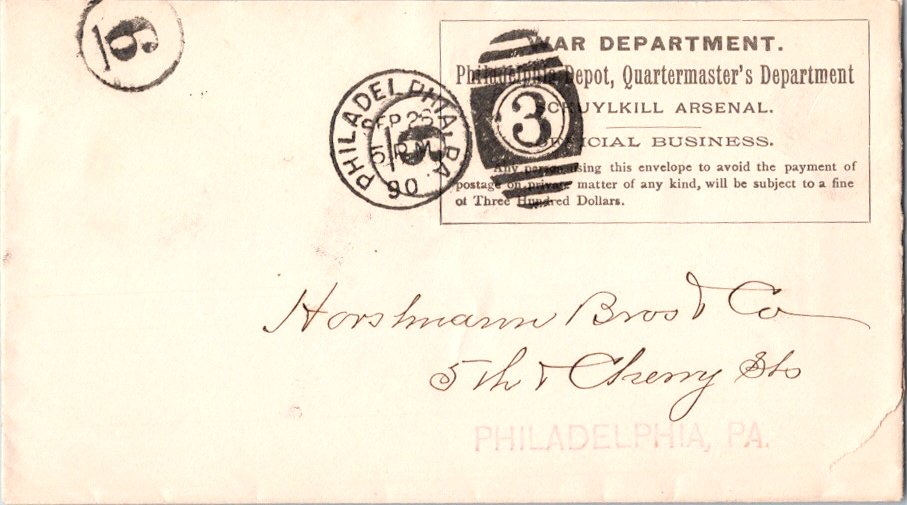 6
WAR DEPARTMENT.
Philadelphia Depot, Quartermaster's Department
SCHUYLKILL ARSENAL.
OFFICIAL BUSINESS.
Any person using this envelope to avoid the payment of
postage on private matter of any kind, will be subject to a fine
of Three Hundred Dollars.
PHILADELPHIA, PA
SEP 26
5 P.M.
90
3
Horstmann Bros & Co
5th & Cherry Sts
PHILADELPHIA, PA.